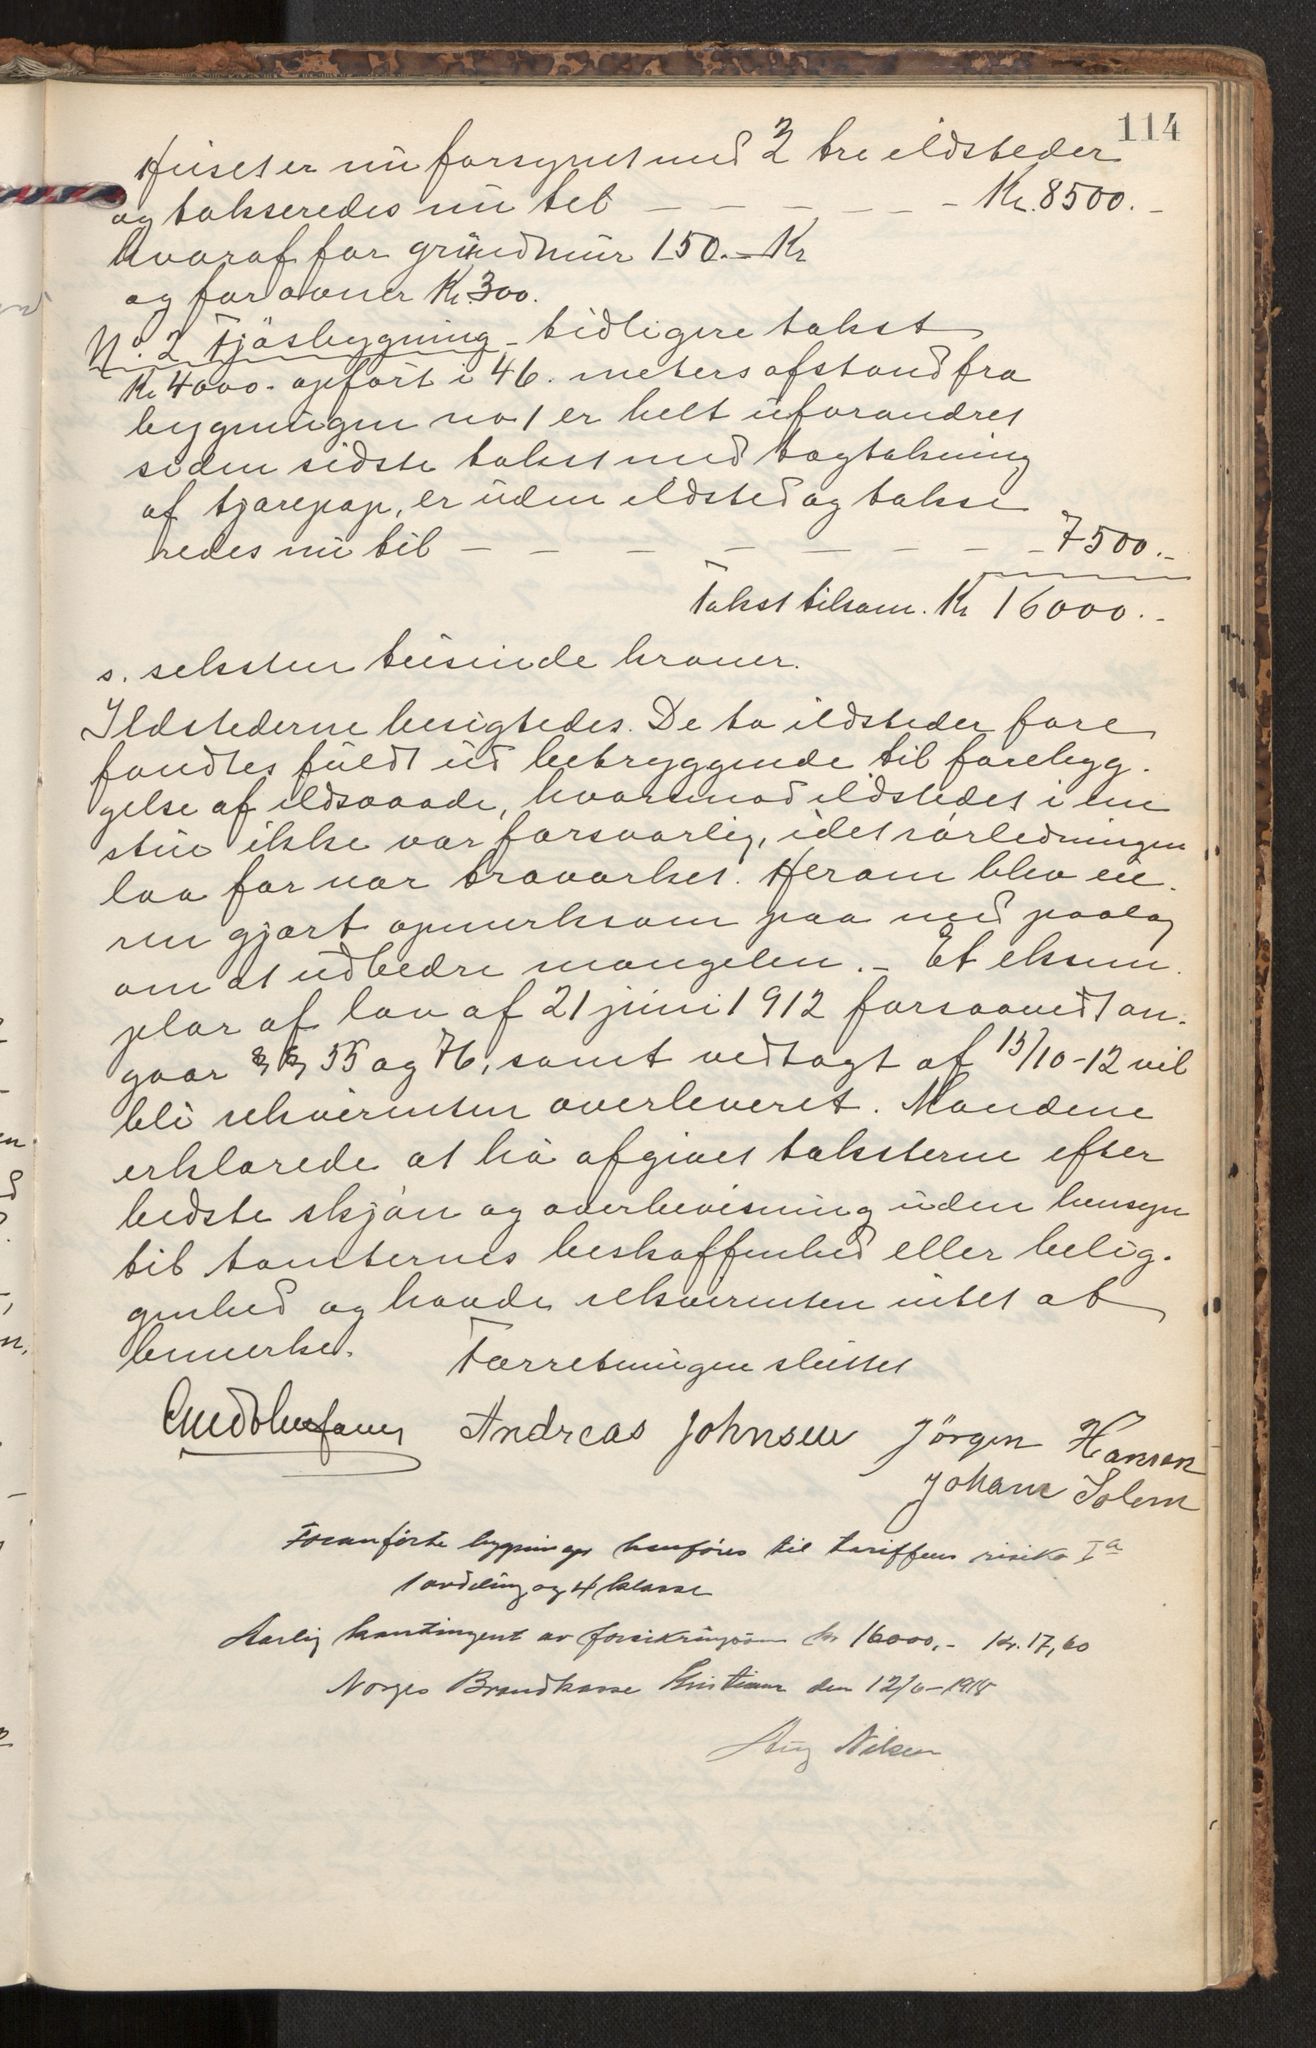 114
Huset er nu forsynet med 3 tre ildsteder
og takseredes nu til — — — — — — Kr. 8500.-
hvoraf for grundmur 150.- Kr
og for ovner Kr. 300.
No. 2 Fjösbygning - tidligere takst
Kr 4000. opfört i 46. meters afstand fra
bygningen no 1 er helt uforandret
siden sidste takst med tagtækning
af tjærepap, er uden ildsted og takse
redes nu til — — — — — — — — 7500.-
Takst tilsam. Kr 16000.-
s. seksten tusinde kroner.
Ildstederne besigtedes. De to ildsteder fore
fandtes fuldt ud betryggende til forebyg-
gelse af ildsvaade, hvorimod ildstedet i en
stue ikke var forsvarlig, idet rörledningen
laa for nær træværket. Herom blev eie-
ren gjort opmerksom paa med paalæg
om at udbedre mangelen. - Et eksem-
plar af lov af 21 juni 1912 forsaavidt an-
gaar §§ 55 og 76, samt vedtægt af 15/10-12 vil
bli rekvirenten overleveret. Mændene
erklærede at ha afgivet taksterne efter
bedste skjön og overbevisning uden hensyn
til tomternes beskaffenhed eller belig-
genhed og havde rekvirenten intet at
bemerke. Forretningen sluttet
Andreas Johnsen Jörgen Hansen
Johan Solem
Foranförte bygninger henföres til tariffens risiko Ia
1 avdeling og 4 klasse
Aarlig kontingent av forsikringssum kr 16000,- Kr. 17,60
Norges Brandkasse Kristiania den 12/6-1918
Aug Nilsen